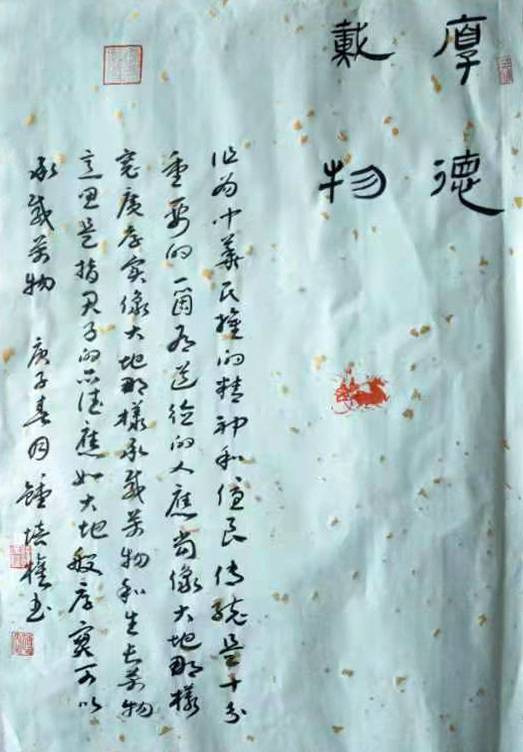 厚德
載物
作为中華民族的精神和優良傳統是十分
重要的一箇有道德的人應當像大地那樣
寬廣厚實像大地那樣承載萬物和生長萬物
意思是指君子的品德應如大地般厚實可以
承載萬物 庚子春月 鍾培權书